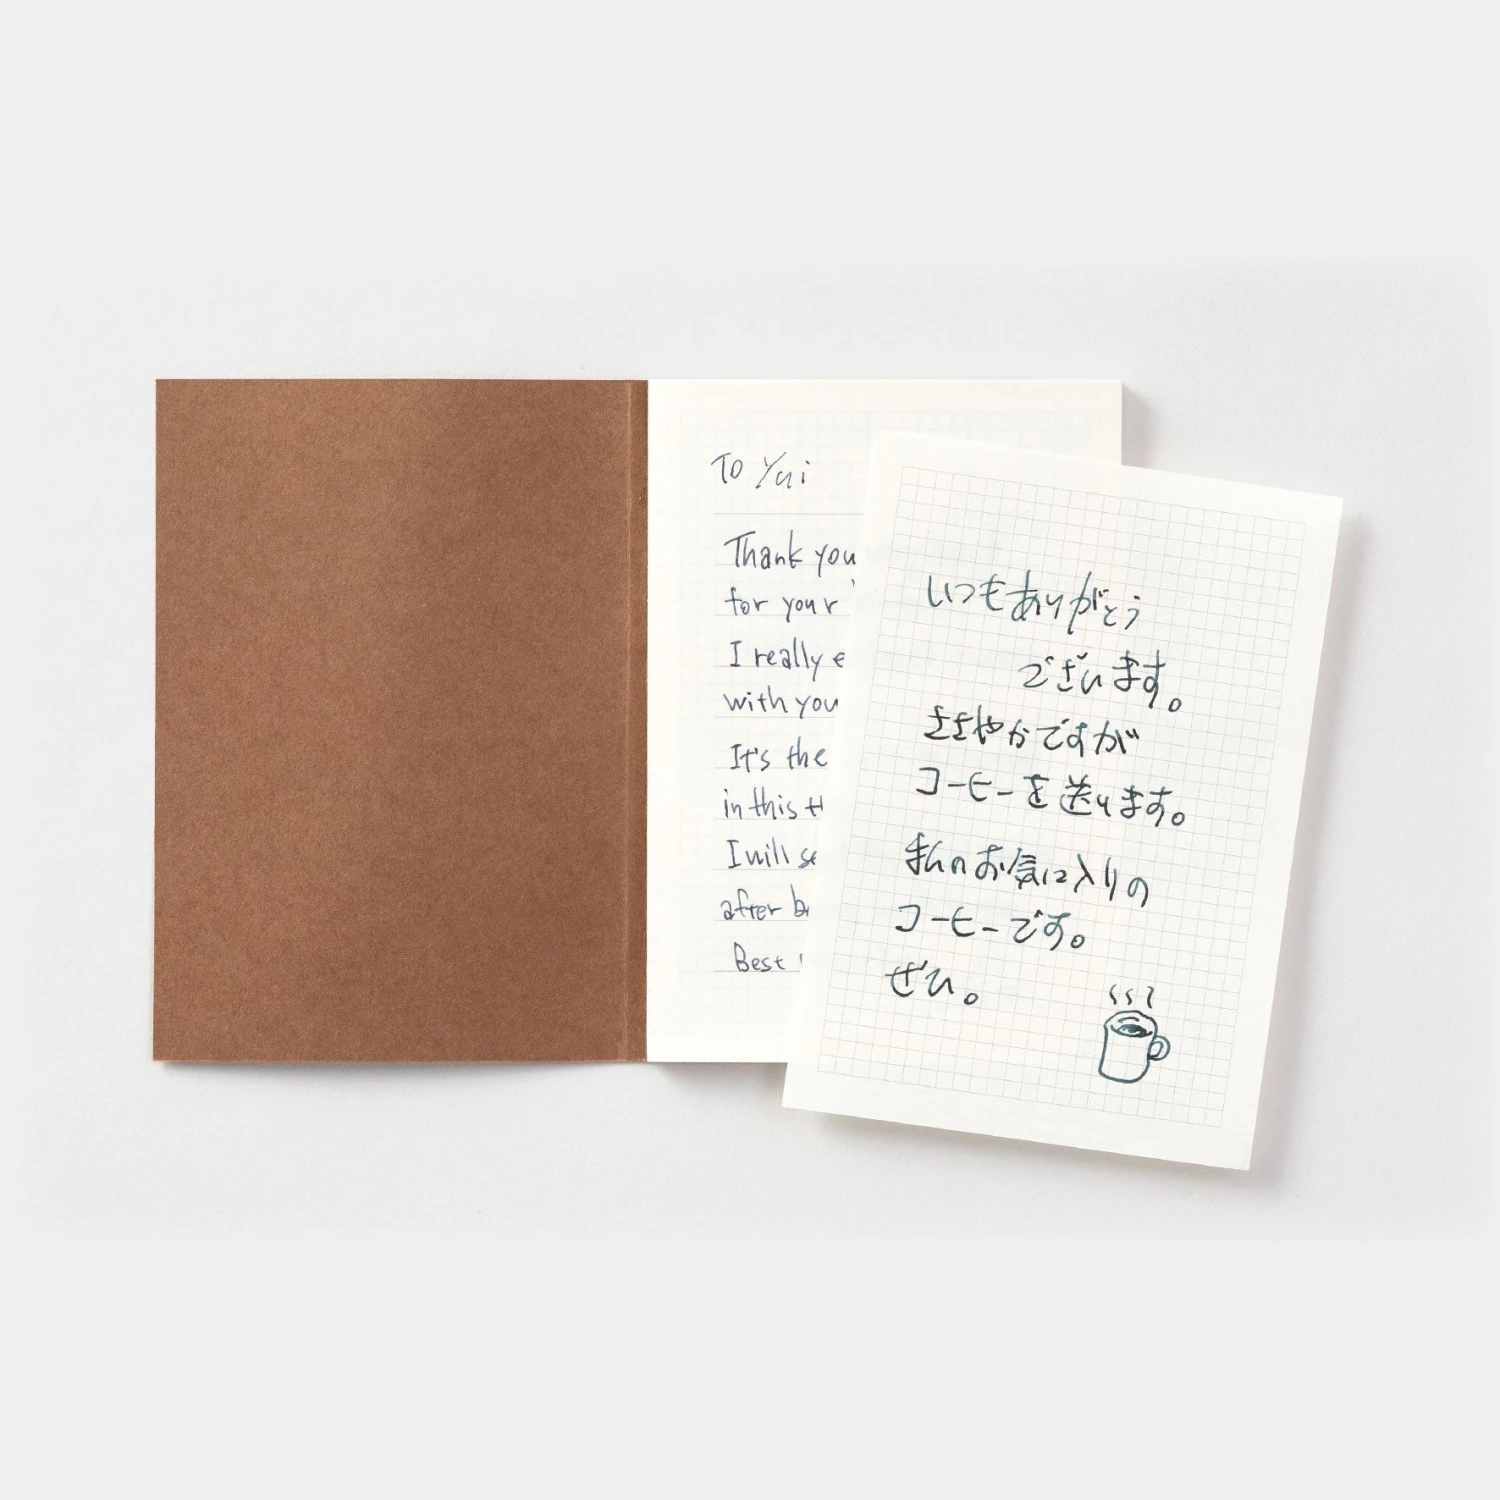 To Yui
Thank you
for your
I really e
with you
It's the
in this th
I will se
after b
Best
いつもありがとう
ございます。
ささやかですが
コーヒーを送ります。
私のお気に入りの
コーヒーです。
ぜひ。